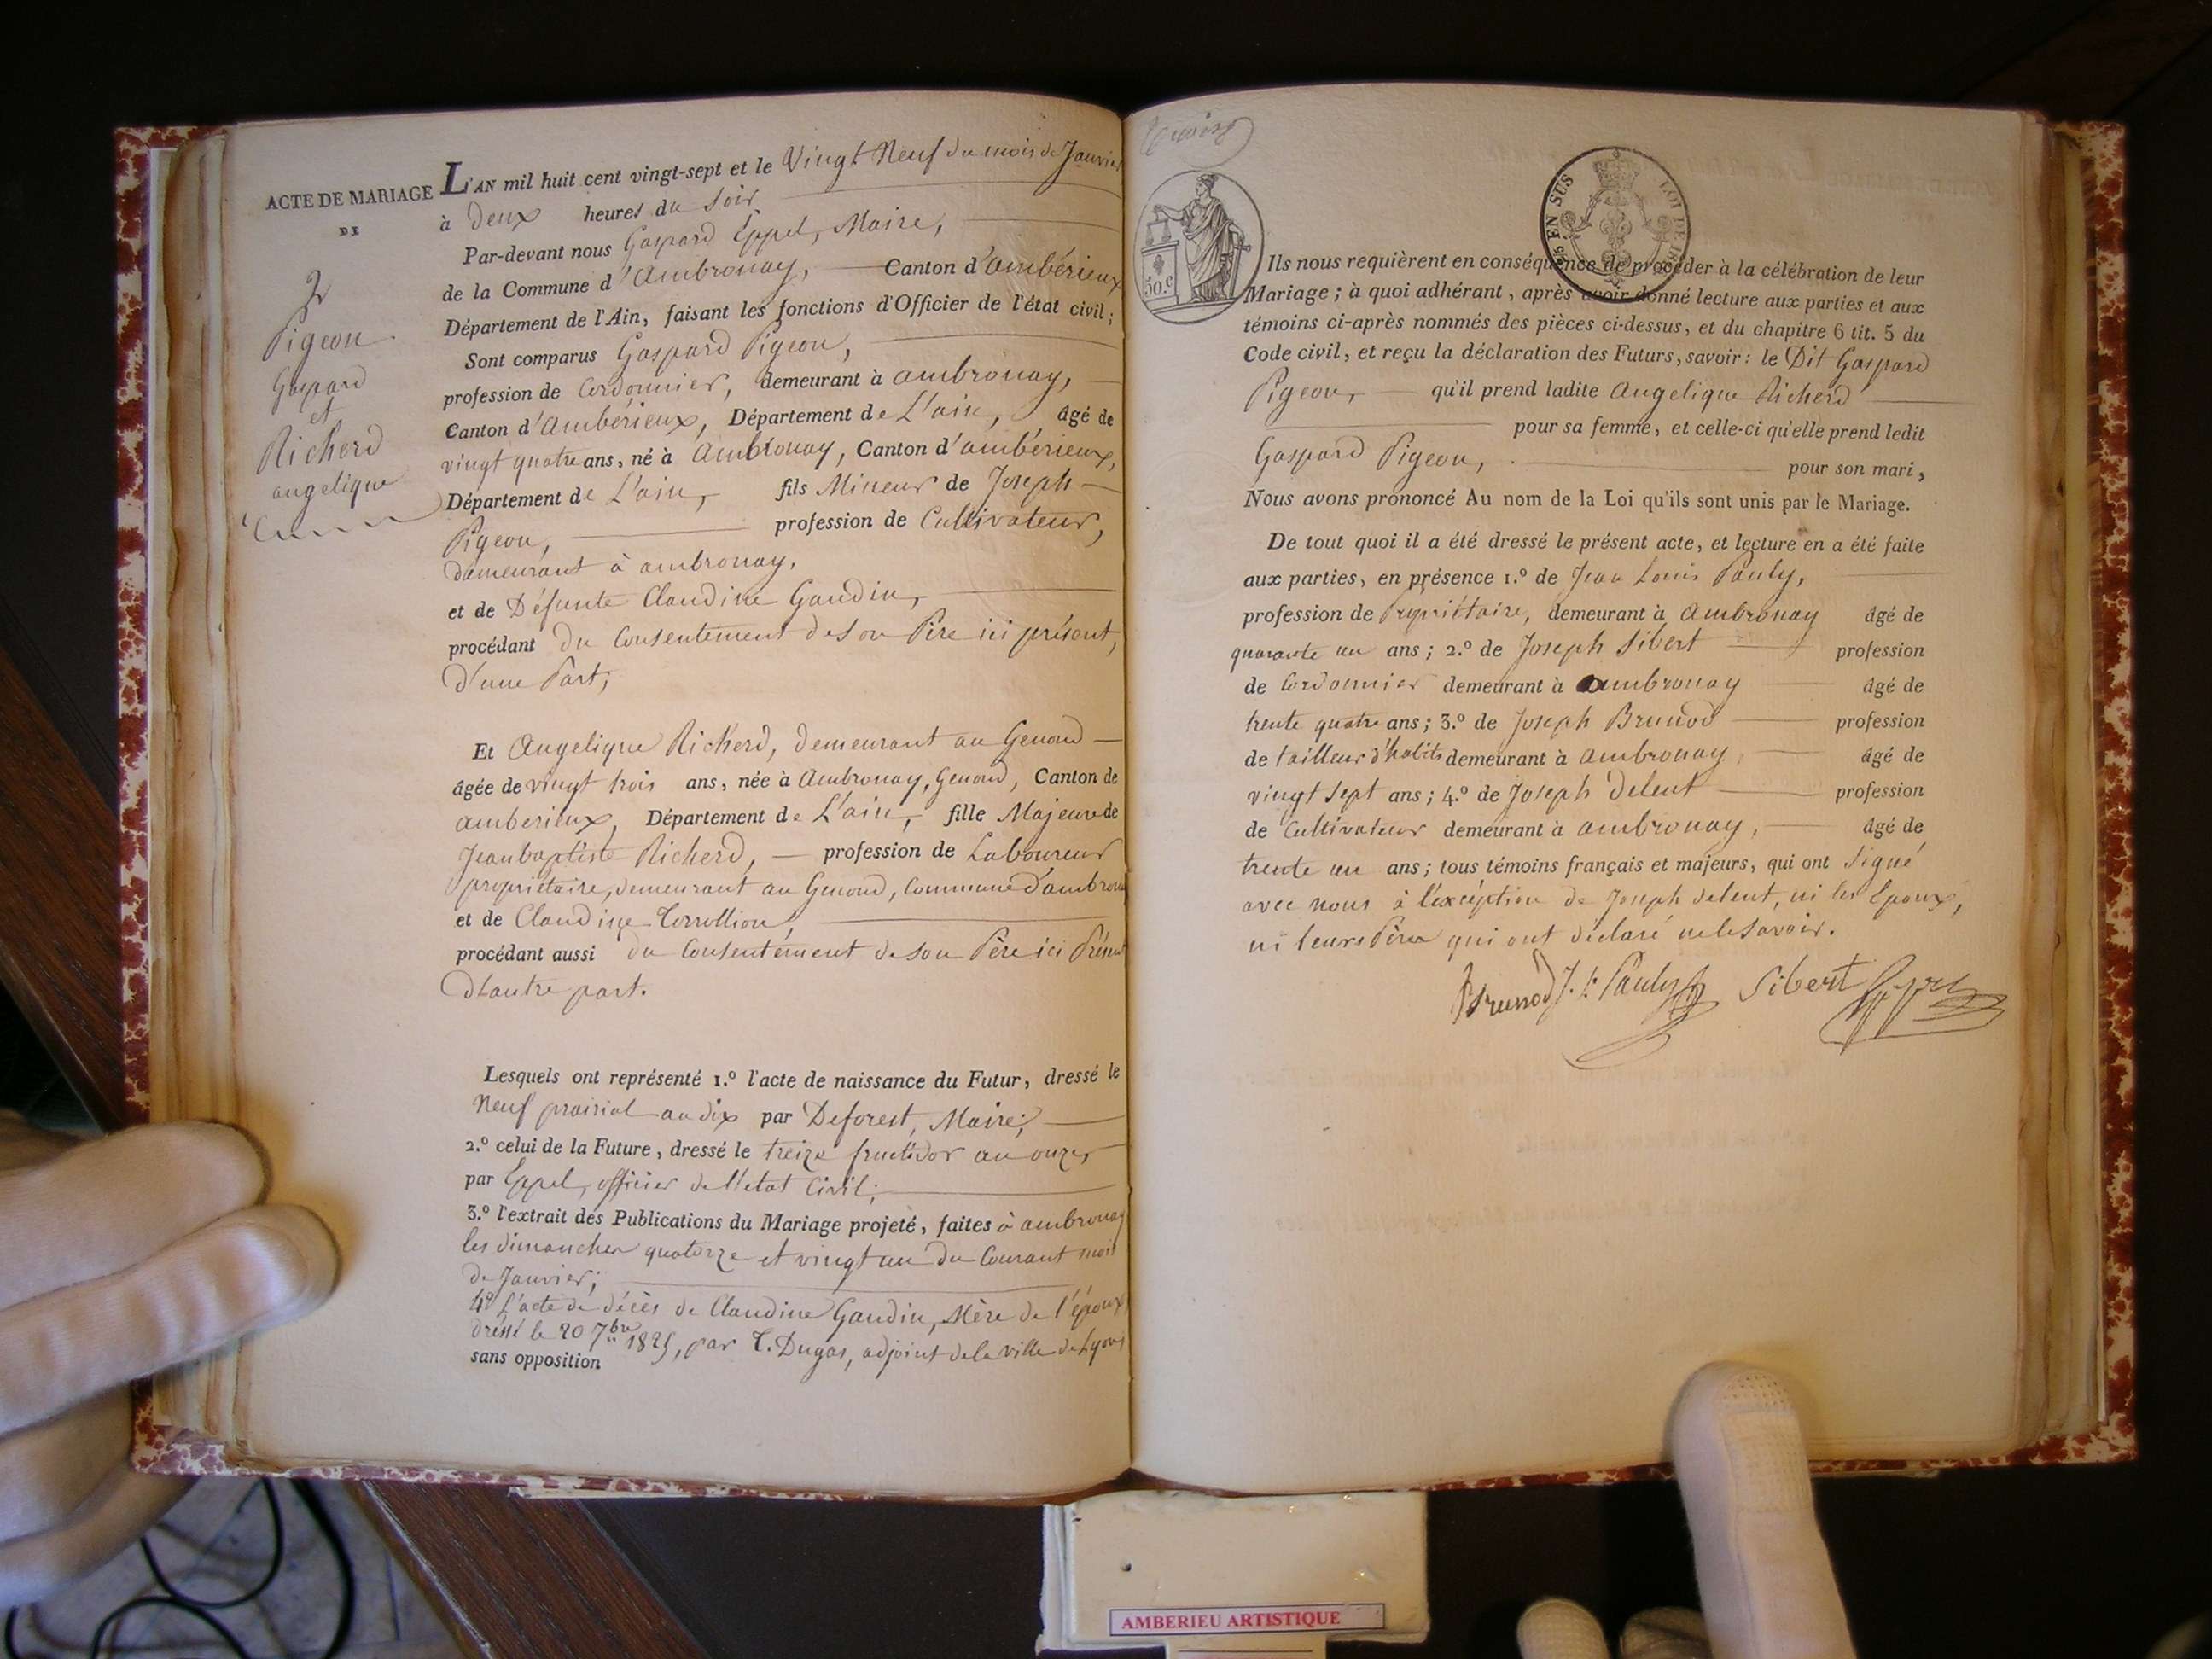 ACTE DE MARIAGE
DE
2
Pigeon
Gaspard
et
Richerd
angelique
L'AN mil huit cent vingt-sept et le Vingt Neuf du mois de Janvier
à Deux heures du Soir
Par-devant nous Gaspard Eppel, Maire,
de la Commune d'Ambronay, Canton d'ambérieux
Département de l'Ain, faisant les fonctions d'Officier de l'état civil;
Sont comparus Gaspard Pigeon,
profession de Cordonnier, demeurant à ambronay,
Canton d'Ambérieux, Département de L'ain, âgé de
vingt quatre ans, né à Ambronay, Canton d'ambérieux,
Département de L'ain, fils Mineur de Joseph
Pigeon, profession de Cultivateur,
demeurant à ambronay,
et de Défunte Claudine Gaudin,
procédant du Consentement de son Père ici présent,
D'une Part;
Et Angelique Richerd, demeurant au Genoud
âgée de vingt trois ans, née à Ambronay, Genoud, Canton de
amberieux, Département de L'ain, fille Majeure de
Jean baptiste Richerd, profession de Laboureur
propriétaire, demeurant au Genoud, Commune d'ambronay
et de Claudine Torrollion,
procédant aussi du Consentement de son Père ici Présent
D'autre part.
Lesquels ont représenté 1.º l'acte de naissance du Futur, dressé le
Neuf prairial an dix par Deforest, Maire;
2.º celui de la Future, dressé le treize fructidor an onze,
par Eppel, officier de l'état Civil;
3.º l'extrait des Publications du Mariage projeté, faites à ambronay
les dimanches quatorze et vingt un du Courant mois
de Janvier;
4º L'acte de décès de Claudine Gaudin, Mère de l'époux
dressé le 20 7bre 1825, par T. Dugas, adjoint de la ville de Lyon
sans opposition
50.c
EN SUS
LOI DE
Ils nous requièrent en conséquence de procéder à la célébration de leur
Mariage; à quoi adhérant, après avoir donné lecture aux parties et aux
témoins ci-après nommés des pièces ci-dessus, et du chapitre 6 tit. 5 du
Code civil, et reçu la déclaration des Futurs, savoir: le Dit Gaspard
Pigeon, qu'il prend ladite Angelique Richerd
pour sa femme, et celle-ci qu'elle prend ledit
Gaspard Pigeon, pour son mari,
Nous avons prononcé Au nom de la Loi qu'ils sont unis par le Mariage.
De tout quoi il a été dressé le présent acte, et lecture en a été faite
aux parties, en présence 1.º de Jean Louis Pauly,
profession de Propriétaire, demeurant à Ambronay âgé de
quarante un ans; 2.º de Joseph Sibert profession
de Cordonnier demeurant à ambronay âgé de
trente quatre ans; 3.º de Joseph Brunod profession
de tailleur d'habits demeurant à ambronay, âgé de
vingt sept ans; 4.º de Joseph Delent profession
de Cultivateur demeurant à ambronay, âgé de
trente un ans; tous témoins français et majeurs, qui ont Signé
avec nous à l'exception de Joseph delent, ni les Epoux,
ni leurs Pères qui ont déclaré ne le savoir.
Brunod J. L. Pauly Sibert Eppel
AMBERIEU ARTISTIQUE